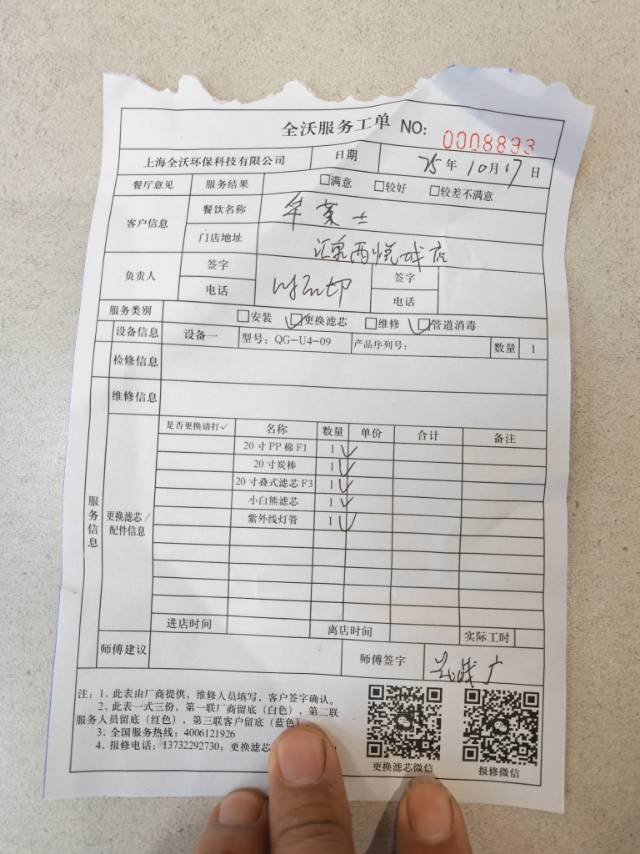 全沃服务工单 NO: 0008893
上海全沃环保科技有限公司 日期 25年10月17日
餐厅意见 服务结果 □满意 □较好 □较差不满意
客户信息 餐饮名称 华莱士
门店地址 西悦城店
负责人 签字 签字
电话 电话
服务类别 □安装 ☑更换滤芯 □维修 ☑管道消毒
设备信息 设备一 型号: QG-U4-09 产品序列号: 数量 1
检修信息
维修信息
服务信息
更换滤芯/配件信息
是否更换请打✓ 名称 数量 单价 合计 备注
20寸PP棉F1 1 ✓
20寸炭棒 1 ✓
20寸叠式滤芯F3 1 ✓
小白熊滤芯 1 ✓
紫外线灯管 1 ✓
进店时间 离店时间 实际工时
师傅建议 师傅签字
注: 1、此表由厂商提供, 维修人员填写, 客户签字确认。
2、此表一式三份, 第一联厂商留底(白色), 第二联
服务人员留底(红色), 第三联客户留底(蓝色)
3、全国服务热线: 4006121926
4、报修电话: 13732292730; 更换滤芯
更换滤芯微信 报修微信